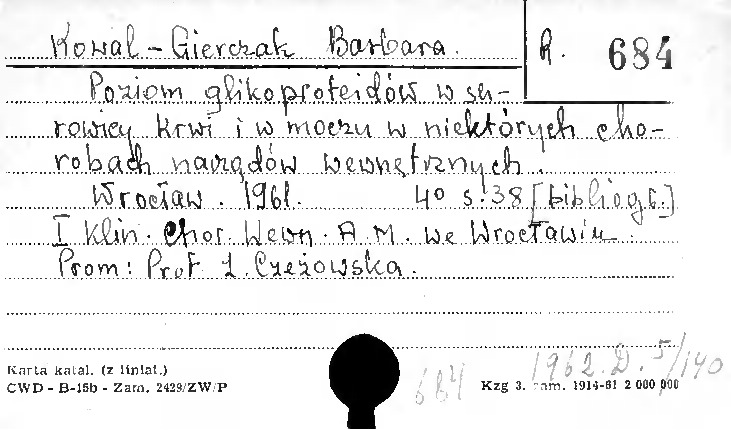 Kowal-Gierczak Barbara.
R. 684
Poziom glikoproteidów w su-
rowicy krwi i w moczu w niektórych cho-
robach narządów wewnętrznych.
Wrocław. 1961. 4° s. 38 [bibliogr.]
I Klin. Chor. Wewn. A.M. we Wrocławiu
Prom: Prof. Z. Czeżowska.
Karta katal. (z liniat.)
CWD - B-15b - Zam. 2429/ZW/P
684
1962. D. 5/140
Kzg 3. zam. 1914-61 2 000 000